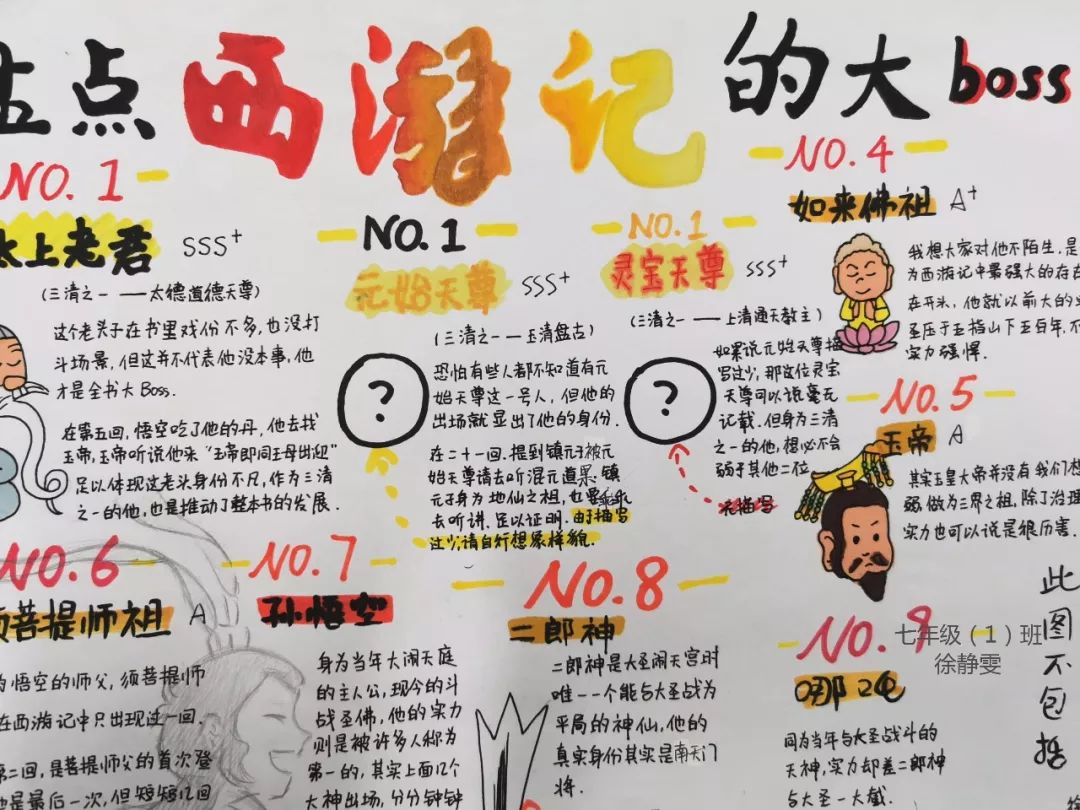 点西游记的大boss
NO.1
太上老君 SSS+
(三清之一 ——太德道德天尊)
这个老头子在书里戏份不多,也没打
斗场景,但这并不代表他没本事,他
才是全书大Boss.
在第五回,悟空吃了他的丹,他去找
玉帝,玉帝听说他来“玉帝即同王母出迎”
足以体现这老头身份不凡,作为三清
之一的他,也是推动了整本书的发展.
NO.1
元始天尊 SSS+
(三清之一 ——玉清盘古)
?
恐怕有些人都不知道有元
始天尊这一号人,但他的
出场就显出了他的身份.
在二十一回,提到镇元子被元
始天尊请去听混元道果.镇
元子身为地仙之祖,也要
去听讲.足以证明.由于描写
过少,请自行想象样貌.
NO.1
灵宝天尊 SSS+
(三清之一 ——上清通天教主)
?
如果说元始天尊描
写过少,那这位灵宝
天尊可以说毫无
记载.但身为三清
之一的他,想必不会
弱于其他二位.
无描写
NO.4
如来佛祖 A+
我想大家对他不陌生,是
为西游记中最强大的存在
在开头,他就以前大的
圣压于五指山下五百年,不
实力强悍.
NO.5
玉帝 A
其实玉皇大帝并没有我们想
弱,做为三界之祖,除了治理
实力也可以说是很历害.
NO.6
须菩提师祖 A
为悟空的师父,须菩提师
在西游记中只出现过一回.
第二回,是菩提师父的首次登
也是最后一次,但短短几回
NO.7
孙悟空
身为当年大闹天庭
的主人公,现今的斗
战圣佛,他的实力
则是被许多人称为
第一的,其实上面几个
大神出场,分分钟钟
NO.8
二郎神
二郎神是大圣闹天宫时
唯一一个能与大圣战为
平局的神仙,他的
真实身份其实是南天门
将.
NO.9
哪吒
同为当年与大圣战斗的
天神,实力却差二郎神
与大圣一大截.
七年级(1)班
徐静雯
此图不包括